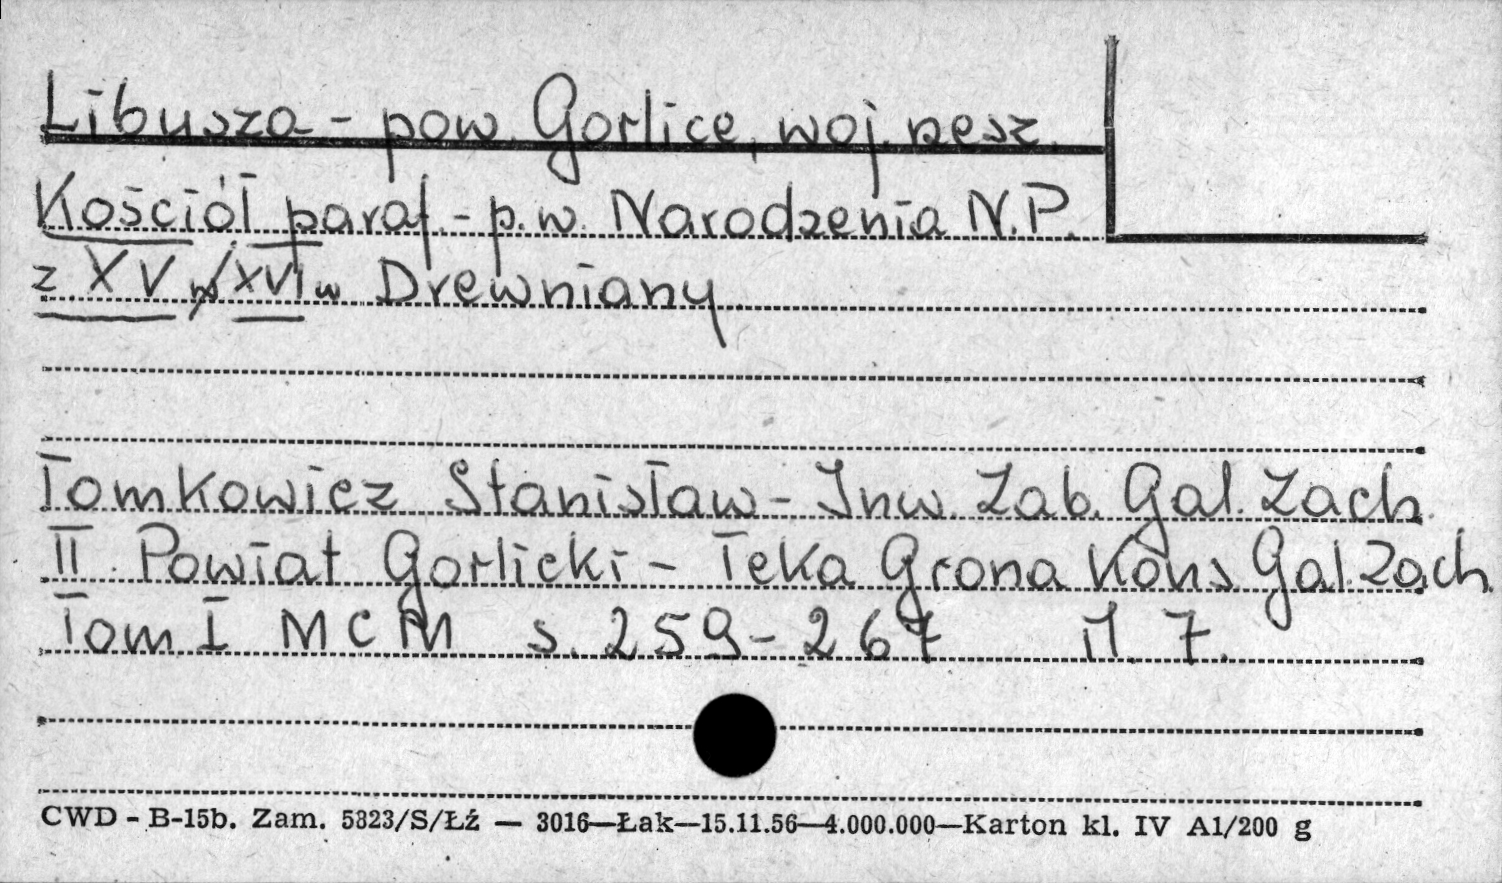 Libusza - pow. Gorlice, woj. rzesz.
Kościół paraf. - p.w. Narodzenia N.P.
z XV w/XVI w Drewniany
Tomkowicz Stanisław - Inw. Zab. Gal. Zach.
II. Powiat Gorlicki - Teka Grona Kons Gal. Zach.
Tom I MCM s. 259-267 il 7.
CWD - B-15b. Zam. 5323/S/Łź — 3016—Łak—15.11.56—4.000.000—Karton kl. IV A1/200 g